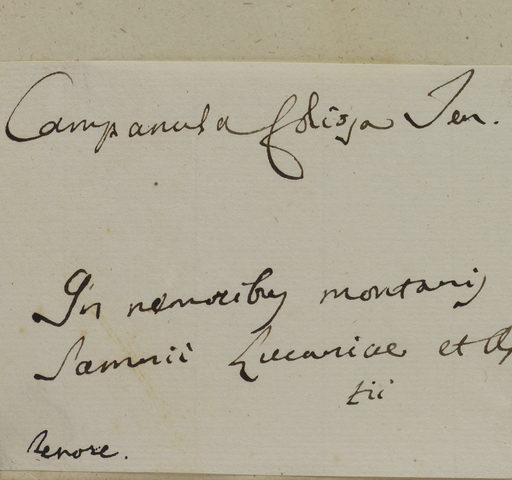 Campanula foliosa Ten.
In nemoribus montanis
Samnii Lucaniae et
tii
Tenore.